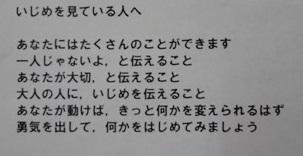 いじめを見ている人へ
あなたにはたくさんのことができます
一人じゃないよ，と伝えること
あなたが大切，と伝えること
大人の人に，いじめを伝えること
あなたが動けば，きっと何かを変えられるはず
勇気を出して，何かをはじめてみましょう